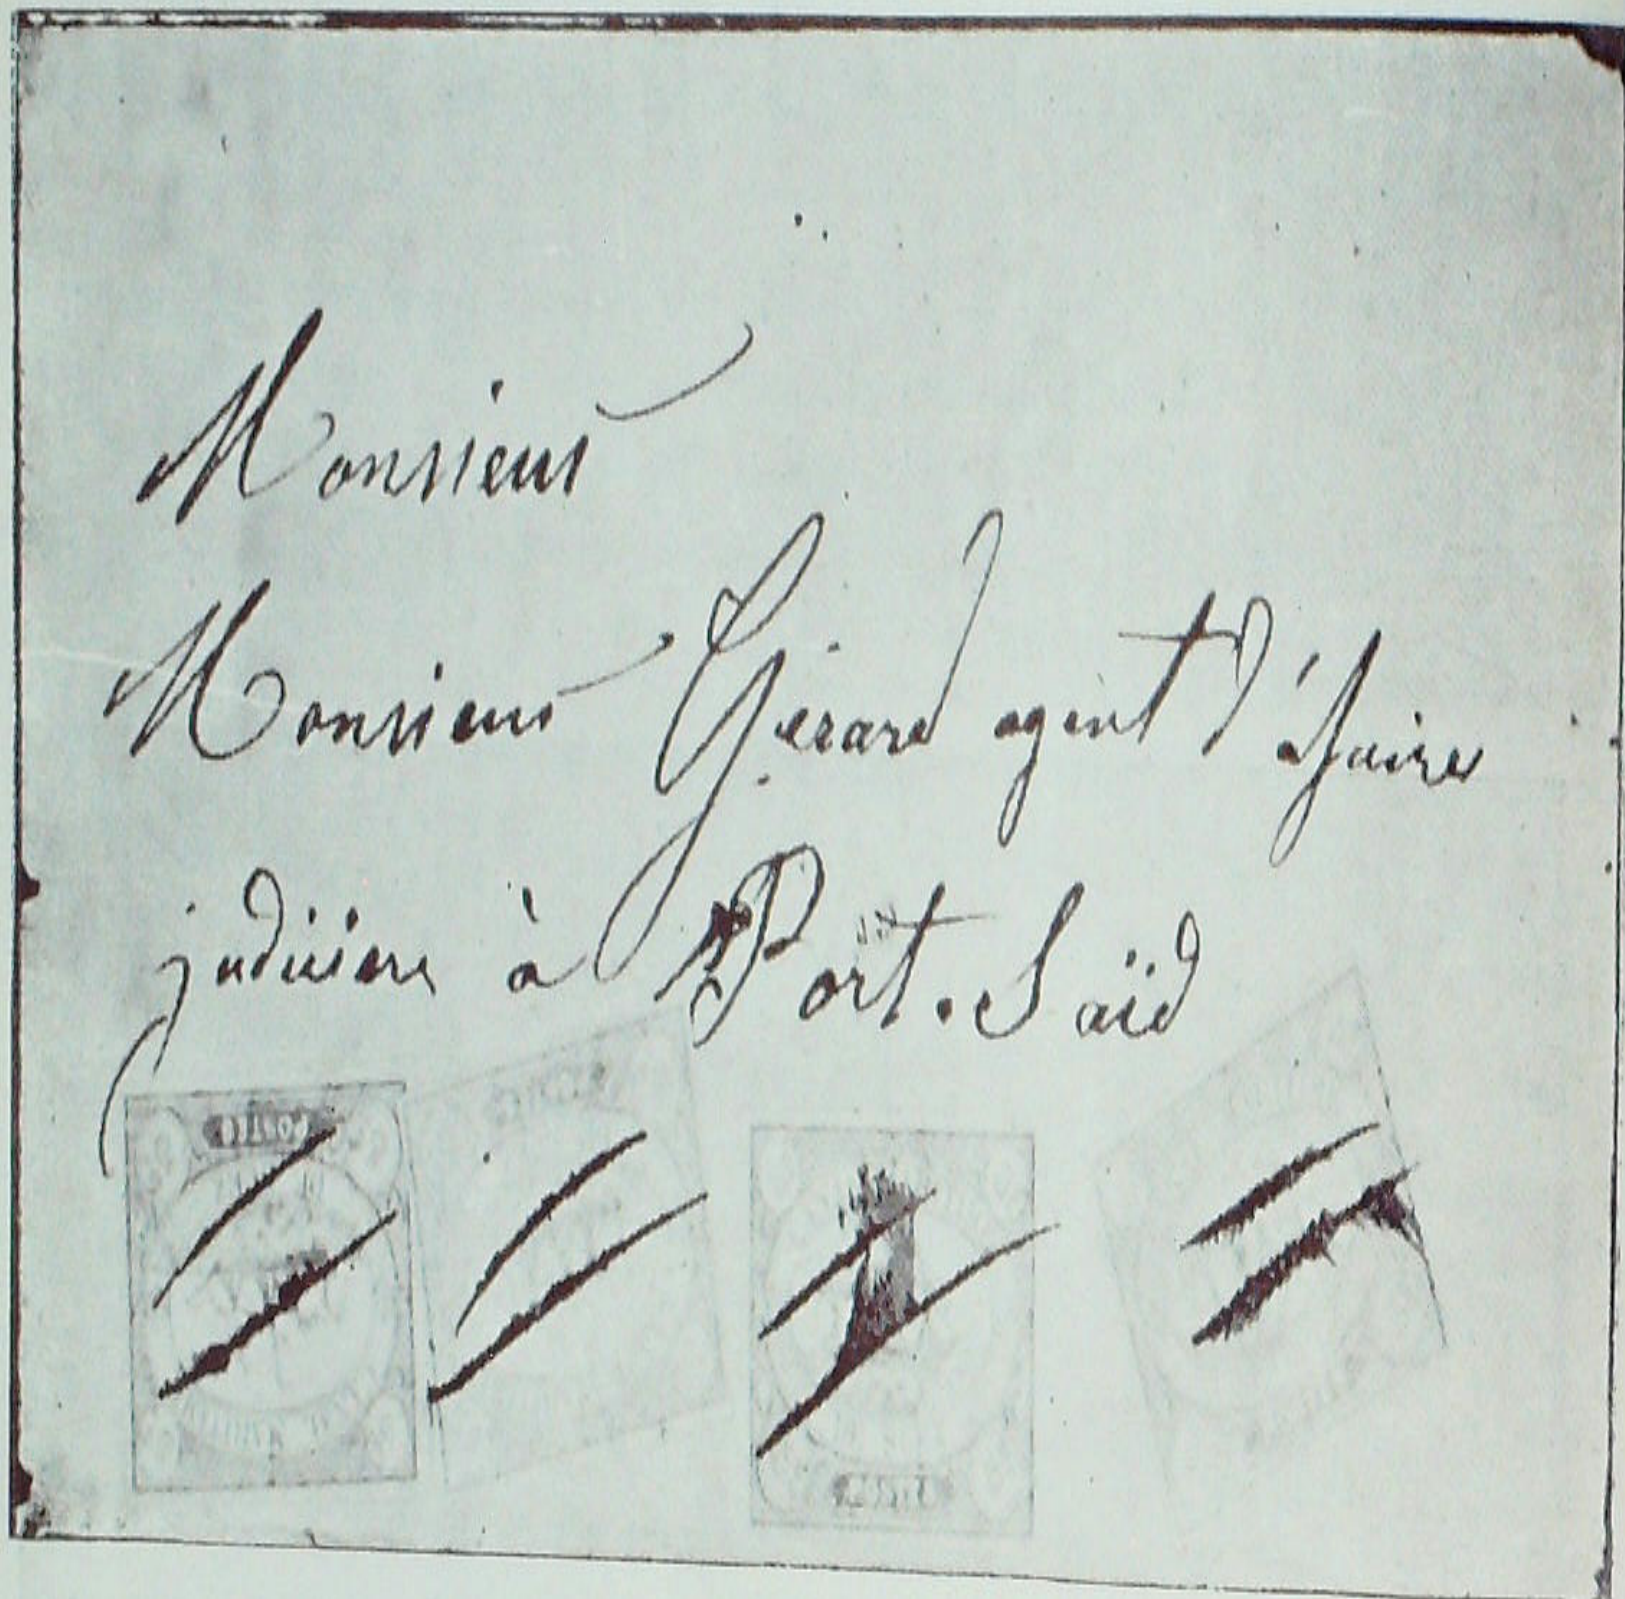 Monsieur
Monsieur Gérard agent d'afaires
judiciere à Port-Saïd